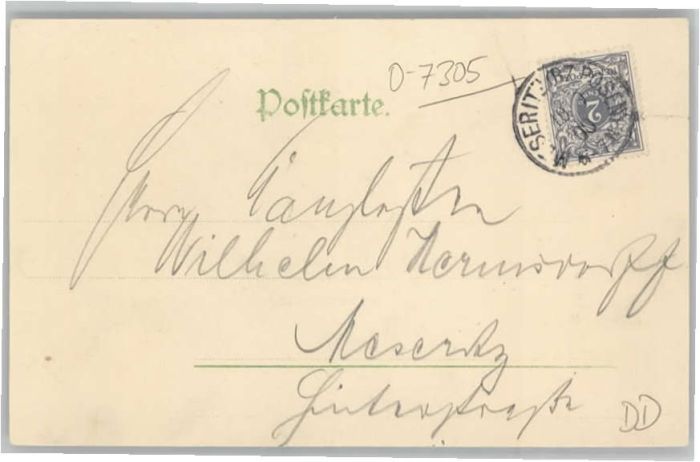 O-7305
Postkarte.
2
MESERITZ (BZ. POSEN)
Herrn Kanzlisten
Wilhelm Hermsdorff
Meseritz
Hinterstraße
DD